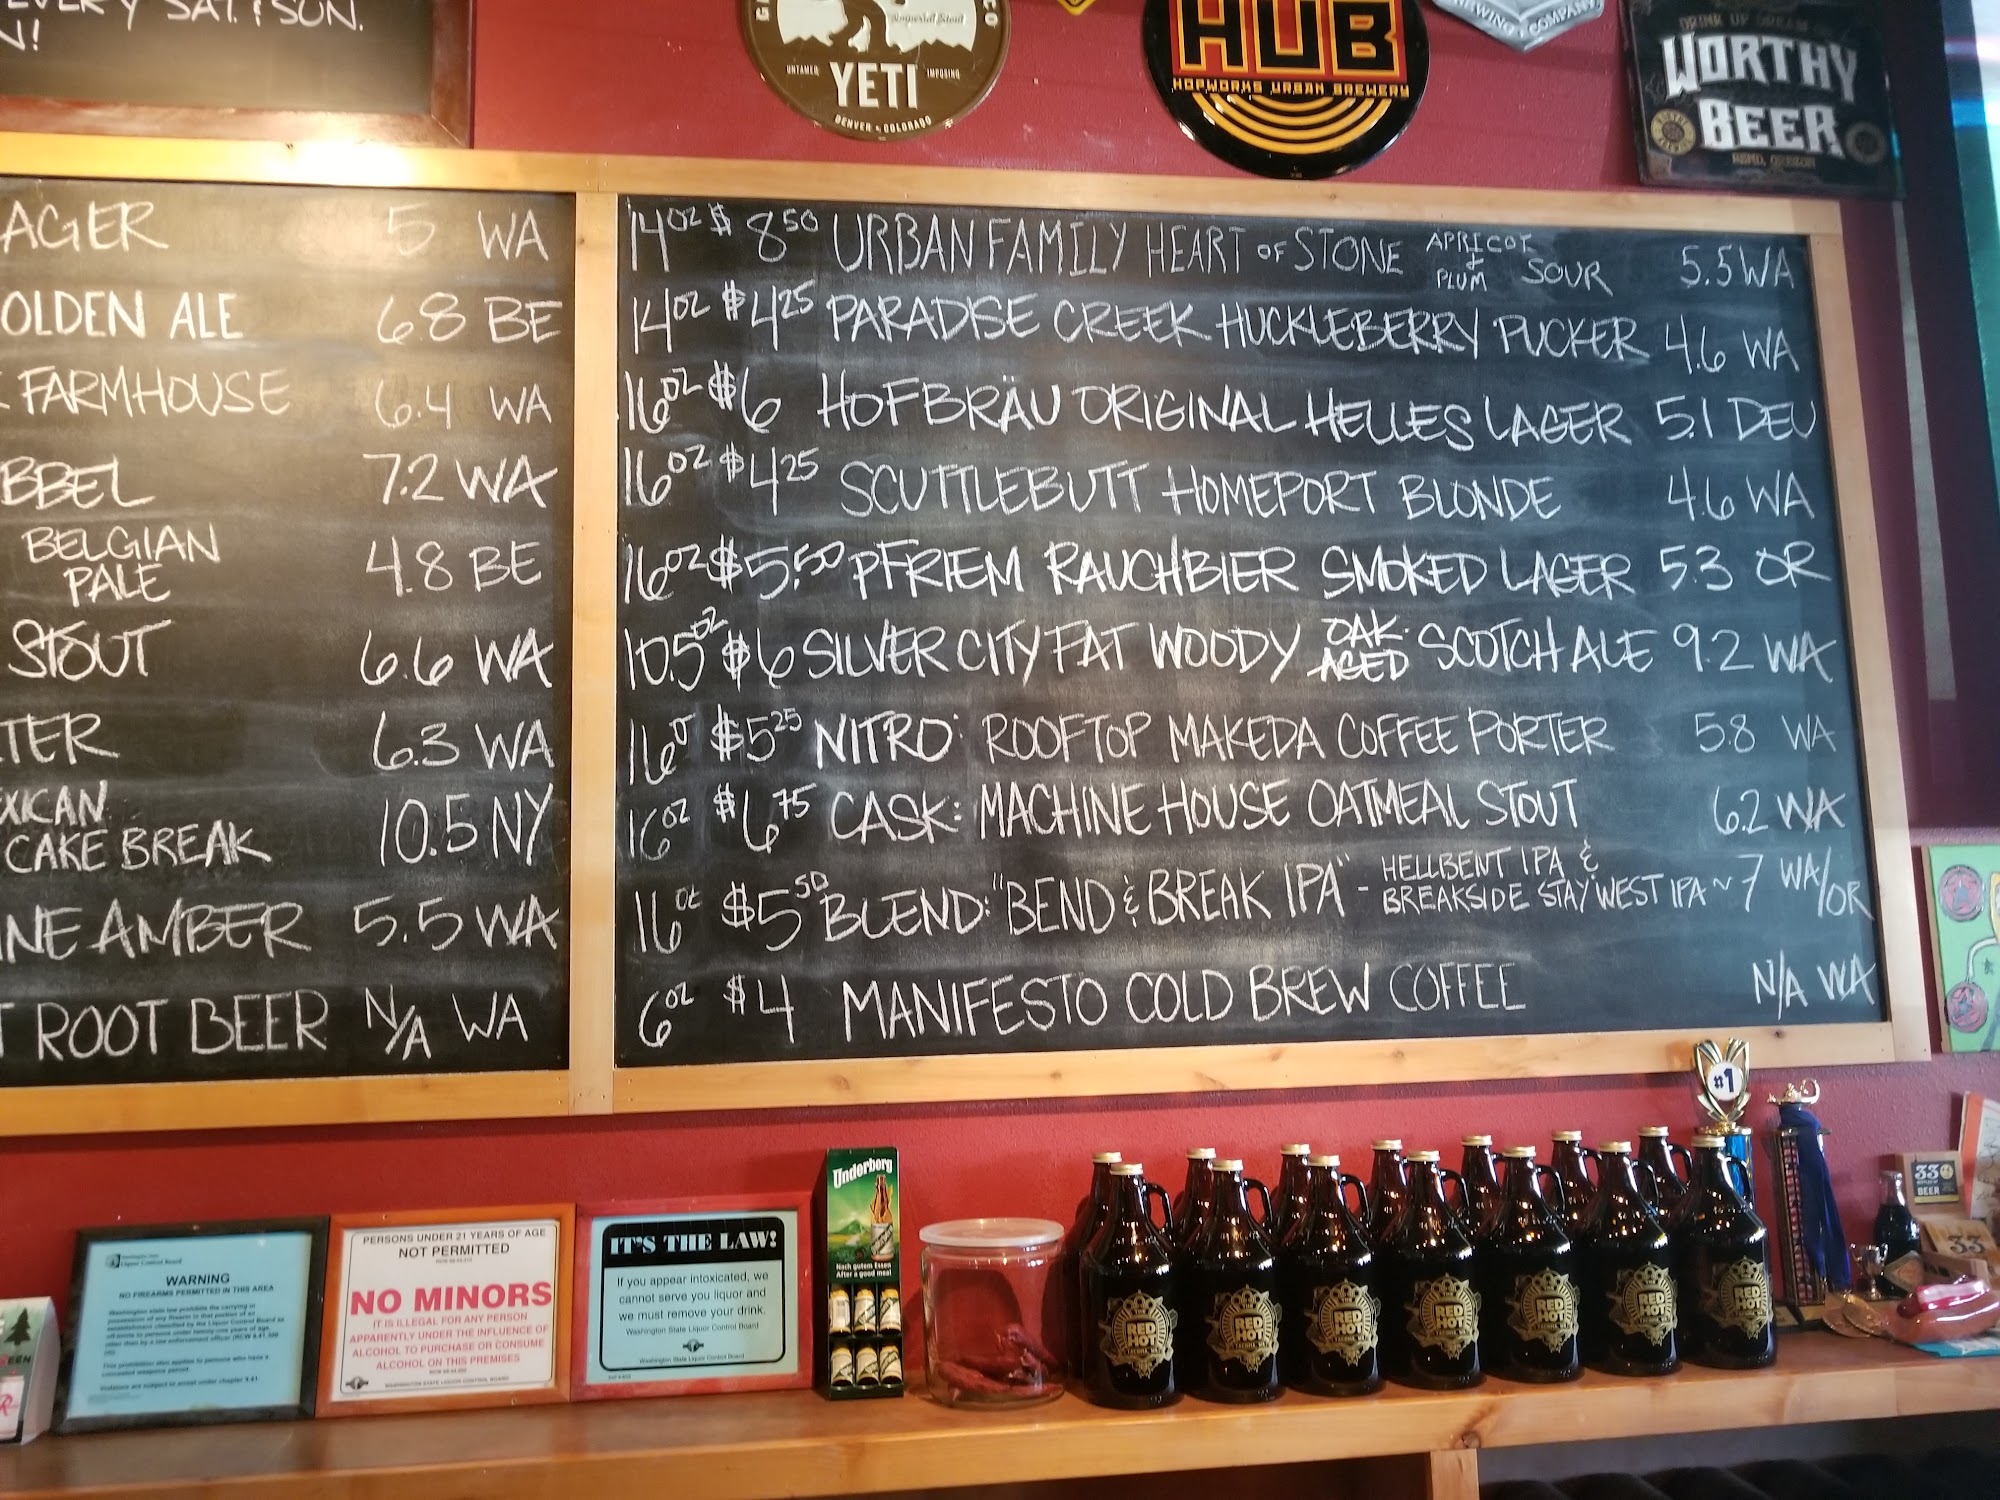 EVERY SAT. & SUN.
N!
Imperial Stout
UNTAMED YETI IMPOSING
DENVER • COLORADO
HUB
HOPWORKS URBAN BREWERY
BREWING COMPANY
DRINK UP DREAM
WORTHY
BEER
BEND, OREGON
AGER 5 WA
OLDEN ALE 6.8 BE
FARMHOUSE 6.4 WA
BBEL 7.2 WA
BELGIAN
PALE 4.8 BE
STOUT 6.6 WA
TER 6.3 WA
XICAN
CAKE BREAK 10.5 NY
INE AMBER 5.5 WA
T ROOT BEER N/A WA
14OZ $8.50 URBAN FAMILY HEART OF STONE APRICOT & PLUM SOUR 5.5 WA
14OZ $4.25 PARADISE CREEK HUCKLEBERRY PUCKER 4.6 WA
16OZ $6 HOFBRÄU ORIGINAL HELLES LAGER 5.1 DEU
16OZ $4.25 SCUTTLEBUTT HOMEPORT BLONDE 4.6 WA
16OZ $5.50 PFRIEM RAUCHBIER SMOKED LAGER 5.3 OR
10.5OZ $6 SILVER CITY FAT WOODY OAK-AGED SCOTCH ALE 9.2 WA
16O $5.25 NITRO: ROOFTOP MAKEDA COFFEE PORTER 5.8 WA
16OZ $6.75 CASK: MACHINE HOUSE OATMEAL STOUT 6.2 WA
16OZ $5.50 BLEND: "BEND & BREAK IPA" - HELLBENT IPA & BREAKSIDE STAY WEST IPA ~7 WA/OR
6OZ $4 MANIFESTO COLD BREW COFFEE N/A WA
#1
Washington State
Liquor Control Board
WARNING
NO FIREARMS PERMITTED IN THIS AREA
PERSONS UNDER 21 YEARS OF AGE
NOT PERMITTED
NO MINORS
IT IS ILLEGAL FOR ANY PERSON
APPARENTLY UNDER THE INFLUENCE OF
ALCOHOL TO PURCHASE OR CONSUME
ALCOHOL ON THIS PREMISES
WASHINGTON STATE LIQUOR CONTROL BOARD
IT'S THE LAW!
If you appear intoxicated, we
cannot serve you liquor and
we must remove your drink.
Washington State Liquor Control Board
Washington State Liquor Control Board
Underberg
Nach gutem Essen
After a good meal
THE RED HOT TACOMA, WA
THE RED HOT TACOMA, WA
THE RED HOT TACOMA, WA
THE RED HOT TACOMA, WA
THE RED HOT TACOMA, WA
THE RED HOT TACOMA, WA
THE RED HOT TACOMA, WA
33
BOTTLES OF
BEER
33